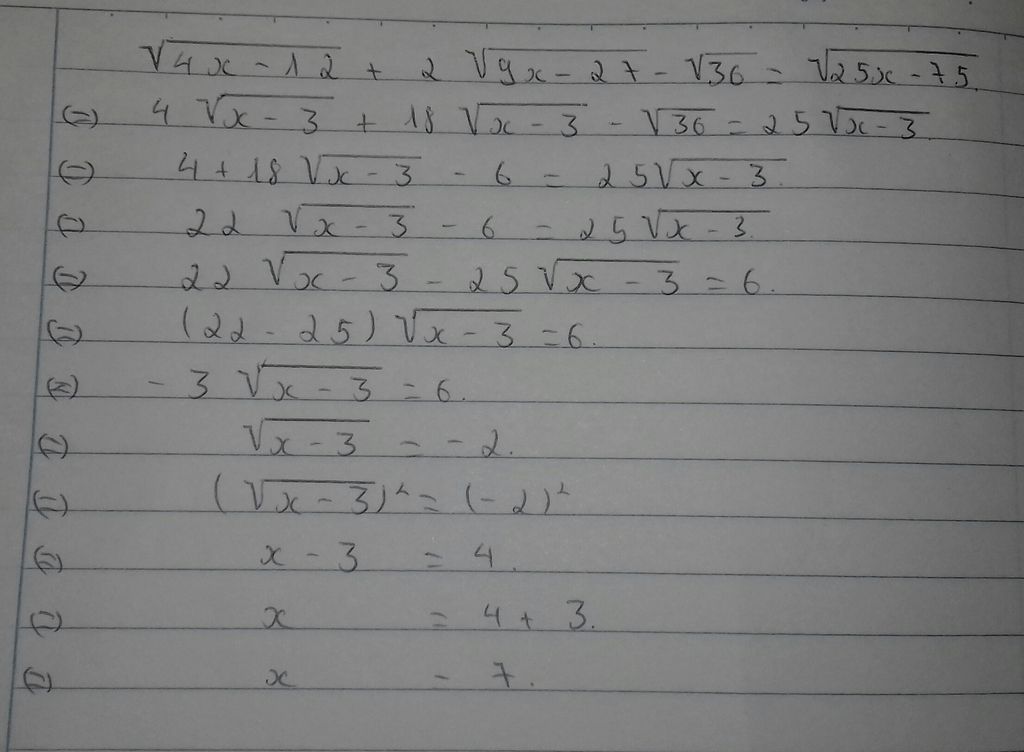 √4x - 12 + 2 √9x - 27 - √36 = √25x - 75.
(=) 4 √x - 3 + 18 √x - 3 - √36 = 25 √x - 3.
(=) 4 + 18 √x - 3 - 6 = 25√x - 3.
(=) 22 √x - 3 - 6 = 25 √x - 3.
(=) 22 √x - 3 - 25 √x - 3 = 6.
(=) (22 - 25) √x - 3 = 6.
(=) - 3 √x - 3 = 6.
(=) √x - 3 = - 2.
(=) (√x - 3)² = (- 2)²
(=) x - 3 = 4.
(=) x = 4 + 3.
(=) x = 7.